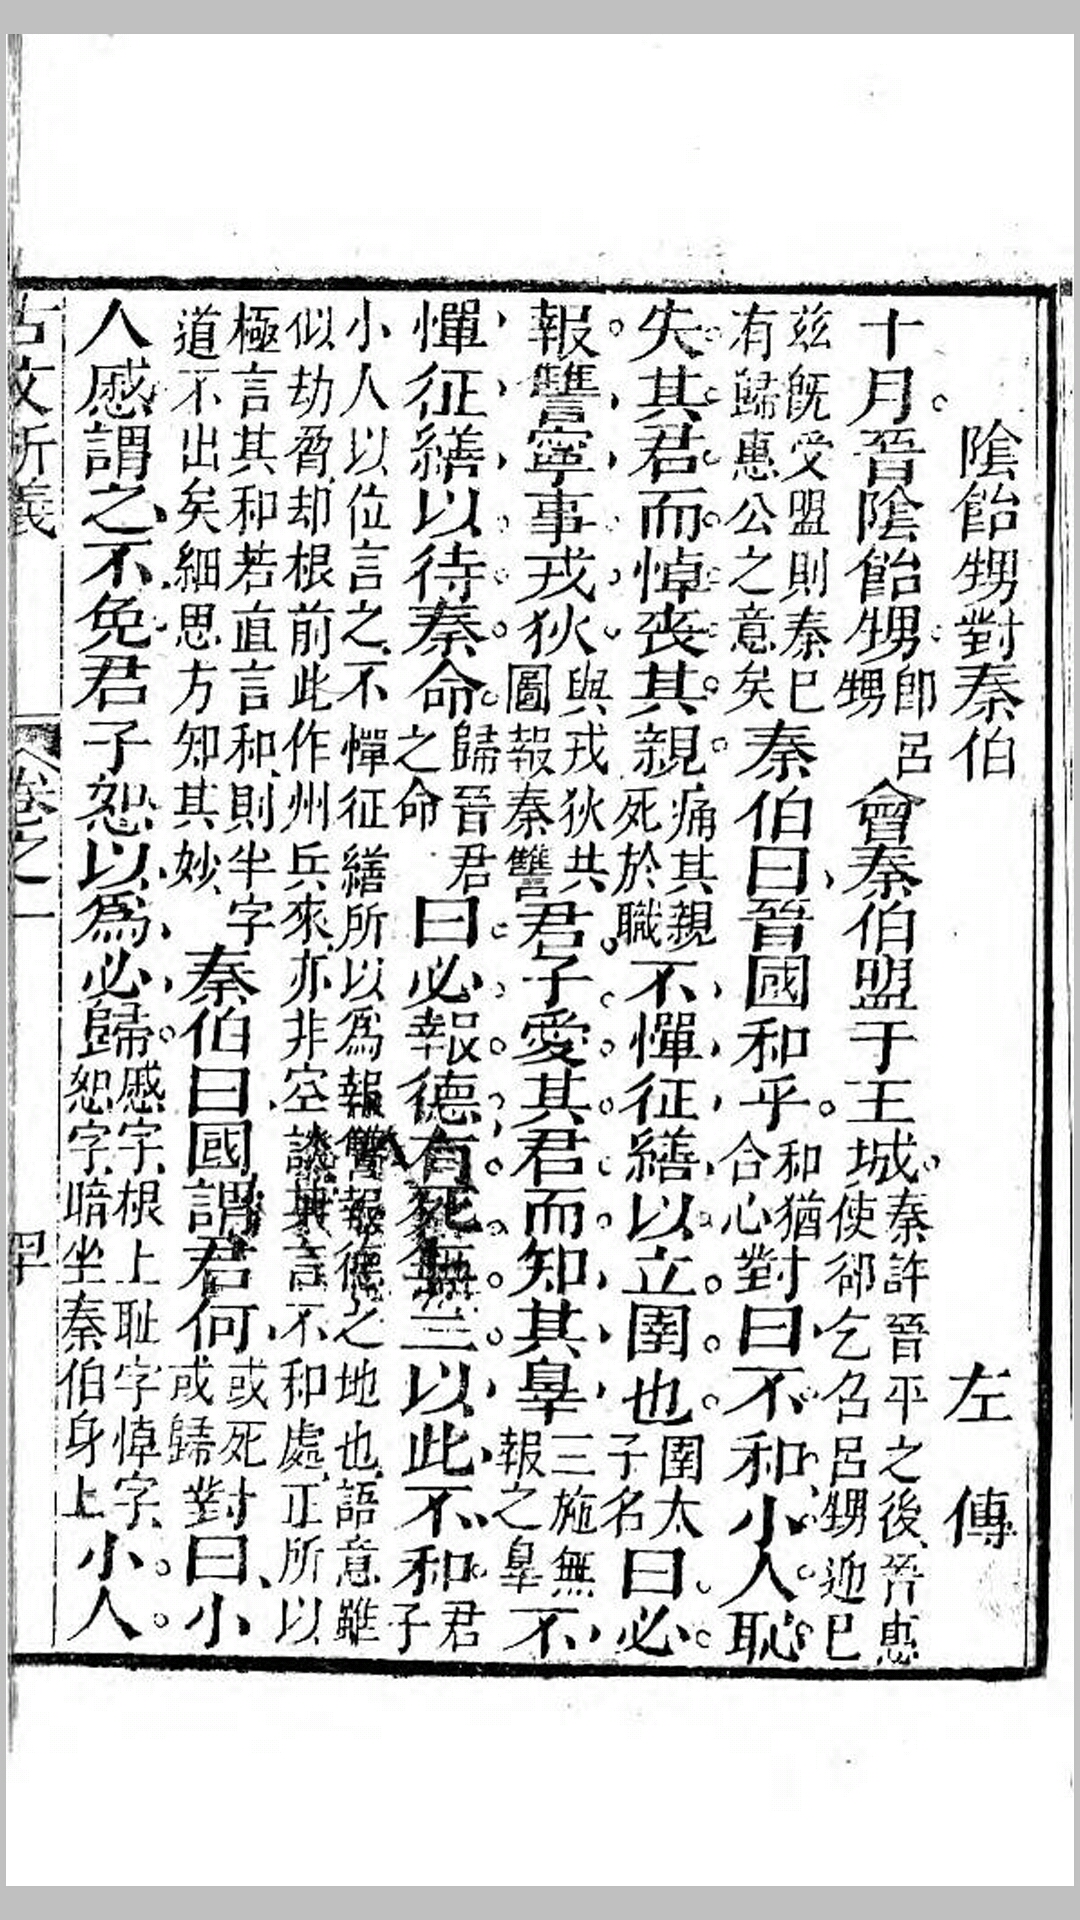 陰飴甥對秦伯　左傳
十月晉陰飴甥即呂甥會秦伯盟于王城秦許晉平之後晉惠使郤乞召呂甥迎巳
茲旣受盟則秦巳有歸惠公之意矣秦伯曰晉國和乎和猶合心對曰不和小人恥
失其君而悼喪其親痛其親死於職不憚征繕以立圉也圉太子名曰必
報讐寧事戎狄與戎狄共圖報秦讐君子愛其君而知其辠三施無報之辠不
憚征繕以待秦命歸晉君之命曰必報德有死無二以此不和君子
小人以位言之不憚征繕所以爲報讐報德之地也語意雖
似劫脅却根前此作州兵來亦非空談其言不和處正所以
極言其和若直言和則半字
道不出矣細思方知其妙秦伯曰國謂君何或死或歸對曰小
人慼謂之不免君子恕以爲必歸慼字根上恥字悼字恕字暗坐秦伯身上小人
古文析義　卷之一